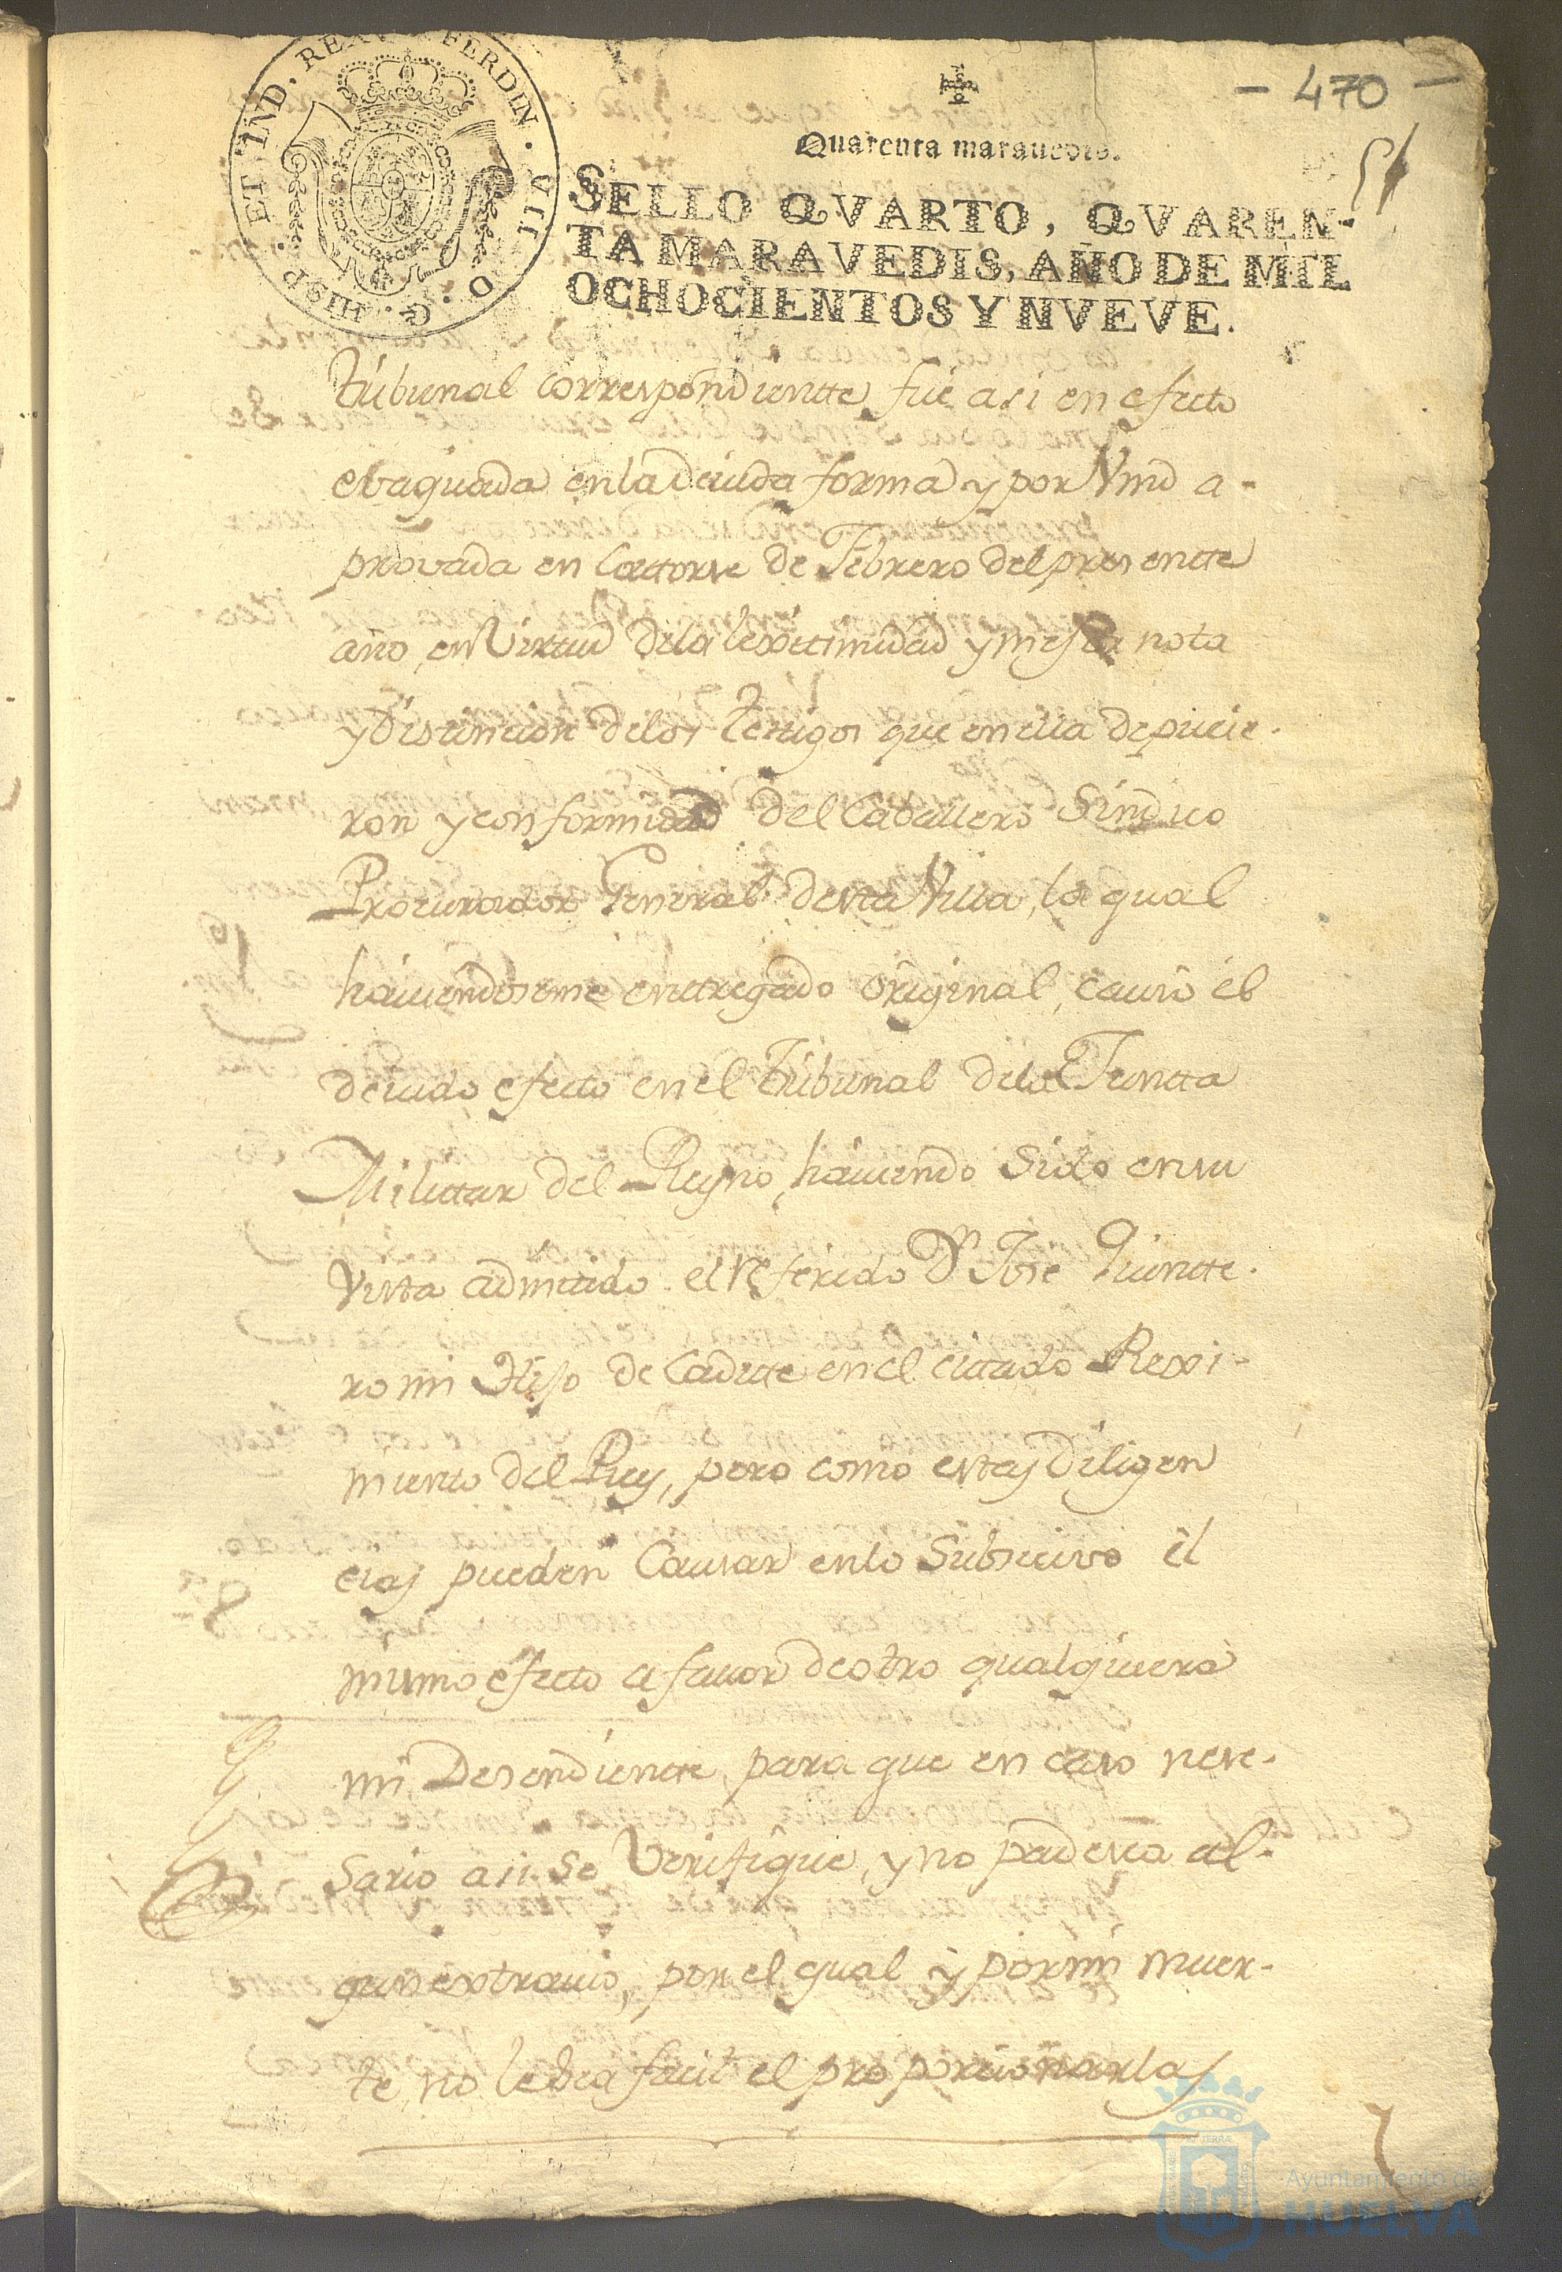 - 470 -
51
FERDIN. VII. D. G. HISP. ET IND. REX
Quarenta marauedis.
SELLO QVARTO, QVAREN-
TA MARAVEDIS, AÑO DE MIL
OCHOCIENTOS Y NVEVE.
tribunal correspondientte, fue asi en efecto
ebaquada en la deuida forma y por Vmd a-
provada en Cattorse de Febrero del presentte
año, en Virtud de la lexitimidad y mejor nota
y Distincion de los testigos que en ella depucie-
ron y conformidad del Caballero Sindico
Procurador General desta Villa, la qual
hauiendoseme enttregado original, causó el
deuido efecto en el tribunal de la Juntta
Milittar del Reyno, hauiendo Sido en su
Vista admitido el referido Dn Jose Quintte-
ro mi Hijo de Cadette en el cittado Rexi-
miento del Rey, pero como estas Diligen
cias pueden Causar en lo Subsecivo el
mismo efecto a fauor de otro qualquiera
mi Desendientte, para que en caso nese-
sario asi se Verifique, y no padesca al-
gun extrauio, por el qual y por mi muer-
te, no le sea facil el proporcionarlas
Ayuntamiento de
HUELVA